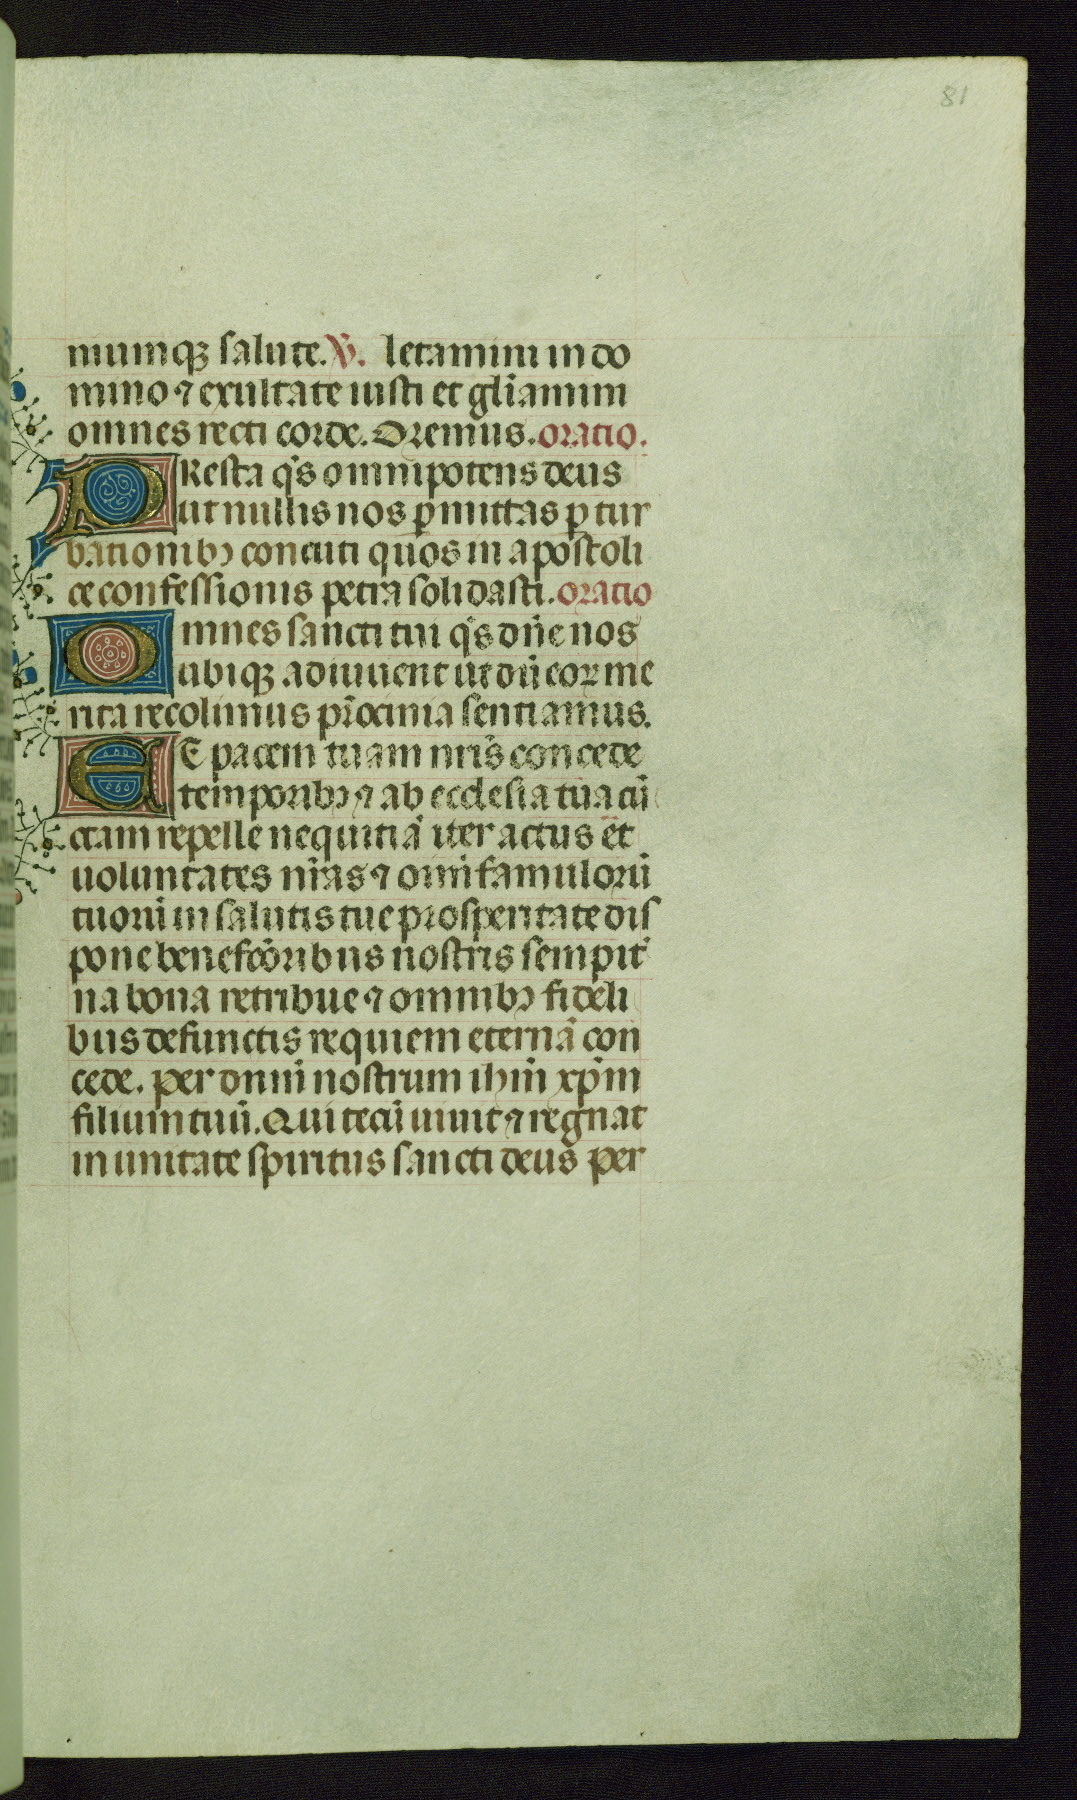 81
niumq3 salute. V. letamini in do
mino ⁊ exultate iusti et gl̄iamini
omnes recti corde. Oremus. oratio.
PResta q̄s omnipotens deus
ut nullis nos ꝑmittas ꝑ tur
bationibꝫ concuti quos in apostoli
ce confessionis petra solidasti. oratio
Omnes sancti tui q̄s dn̄e nos
ubiqꝫ adiuuent ut dū eoꝝ me
rita recolimus pr̄ocinia sentiamus.
Et pacem tuam nr̄is concede
temporibꝫ ⁊ ab ecclesia tua cū
ctam repelle nequitiā iter actus et
uoluntates nr̄as ⁊ oīm famulorū
tuorū in salutis tue prosperitate dis
pone benefcōribus nostris sempit̄
na bona retribue ⁊ omnibꝫ fideli
bus defunctis requiem eternā con
cede. per dnm̄ nostrum ihm̄ xp̄m
filium tuū. Qui tecū uiuit ⁊ regnat
in unitate spiritus sancti deus per